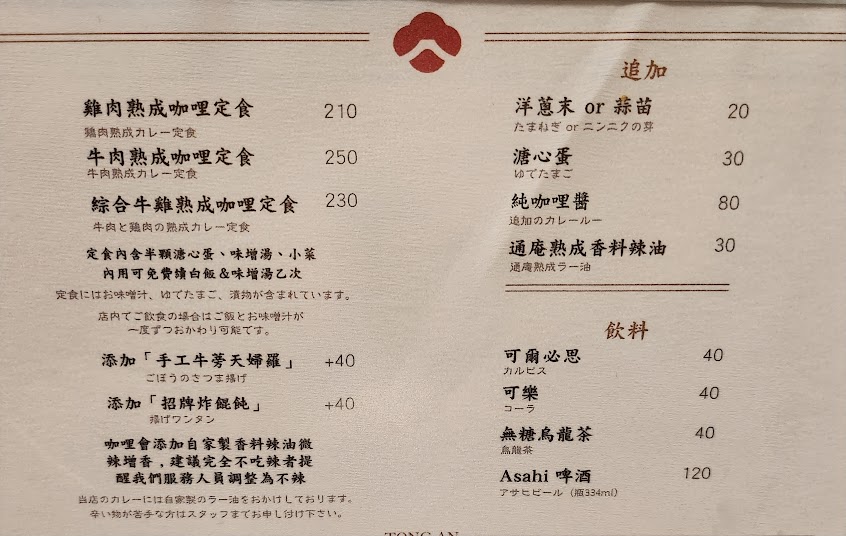 雞肉熟成咖哩定食 210
鶏肉熟成カレー定食
牛肉熟成咖哩定食 250
牛肉熟成カレー定食
綜合牛雞熟成咖哩定食 230
牛肉と鶏肉の熟成カレー定食
定食內含半顆溏心蛋、味增湯、小菜
內用可免費續白飯&味增湯乙次
定食にはお味噌汁、ゆでたまご、漬物が含まれています。
店内でご飲食の場合はご飯とお味噌汁が
一度ずつおかわり可能です。
添加「手工牛蒡天婦羅」 +40
ごぼうのさつま揚げ
添加「招牌炸餛飩」 +40
揚げワンタン
咖哩會添加自家製香料辣油微
辣增香，建議完全不吃辣者提
醒我們服務人員調整為不辣
当店のカレーには自家製のラー油をおかけしております。
辛い物が苦手な方はスタッフまでお申し付け下さい。
追加
洋蔥末 or 蒜苗 20
たまねぎ or ニンニクの芽
溏心蛋 30
ゆでたまご
純咖哩醬 80
追加のカレールー
通庵熟成香料辣油 30
通庵熟成ラー油
飲料
可爾必思 40
カルピス
可樂 40
コーラ
無糖烏龍茶 40
烏龍茶
Asahi 啤酒 120
アサヒビール（瓶334ml）
TONG AN